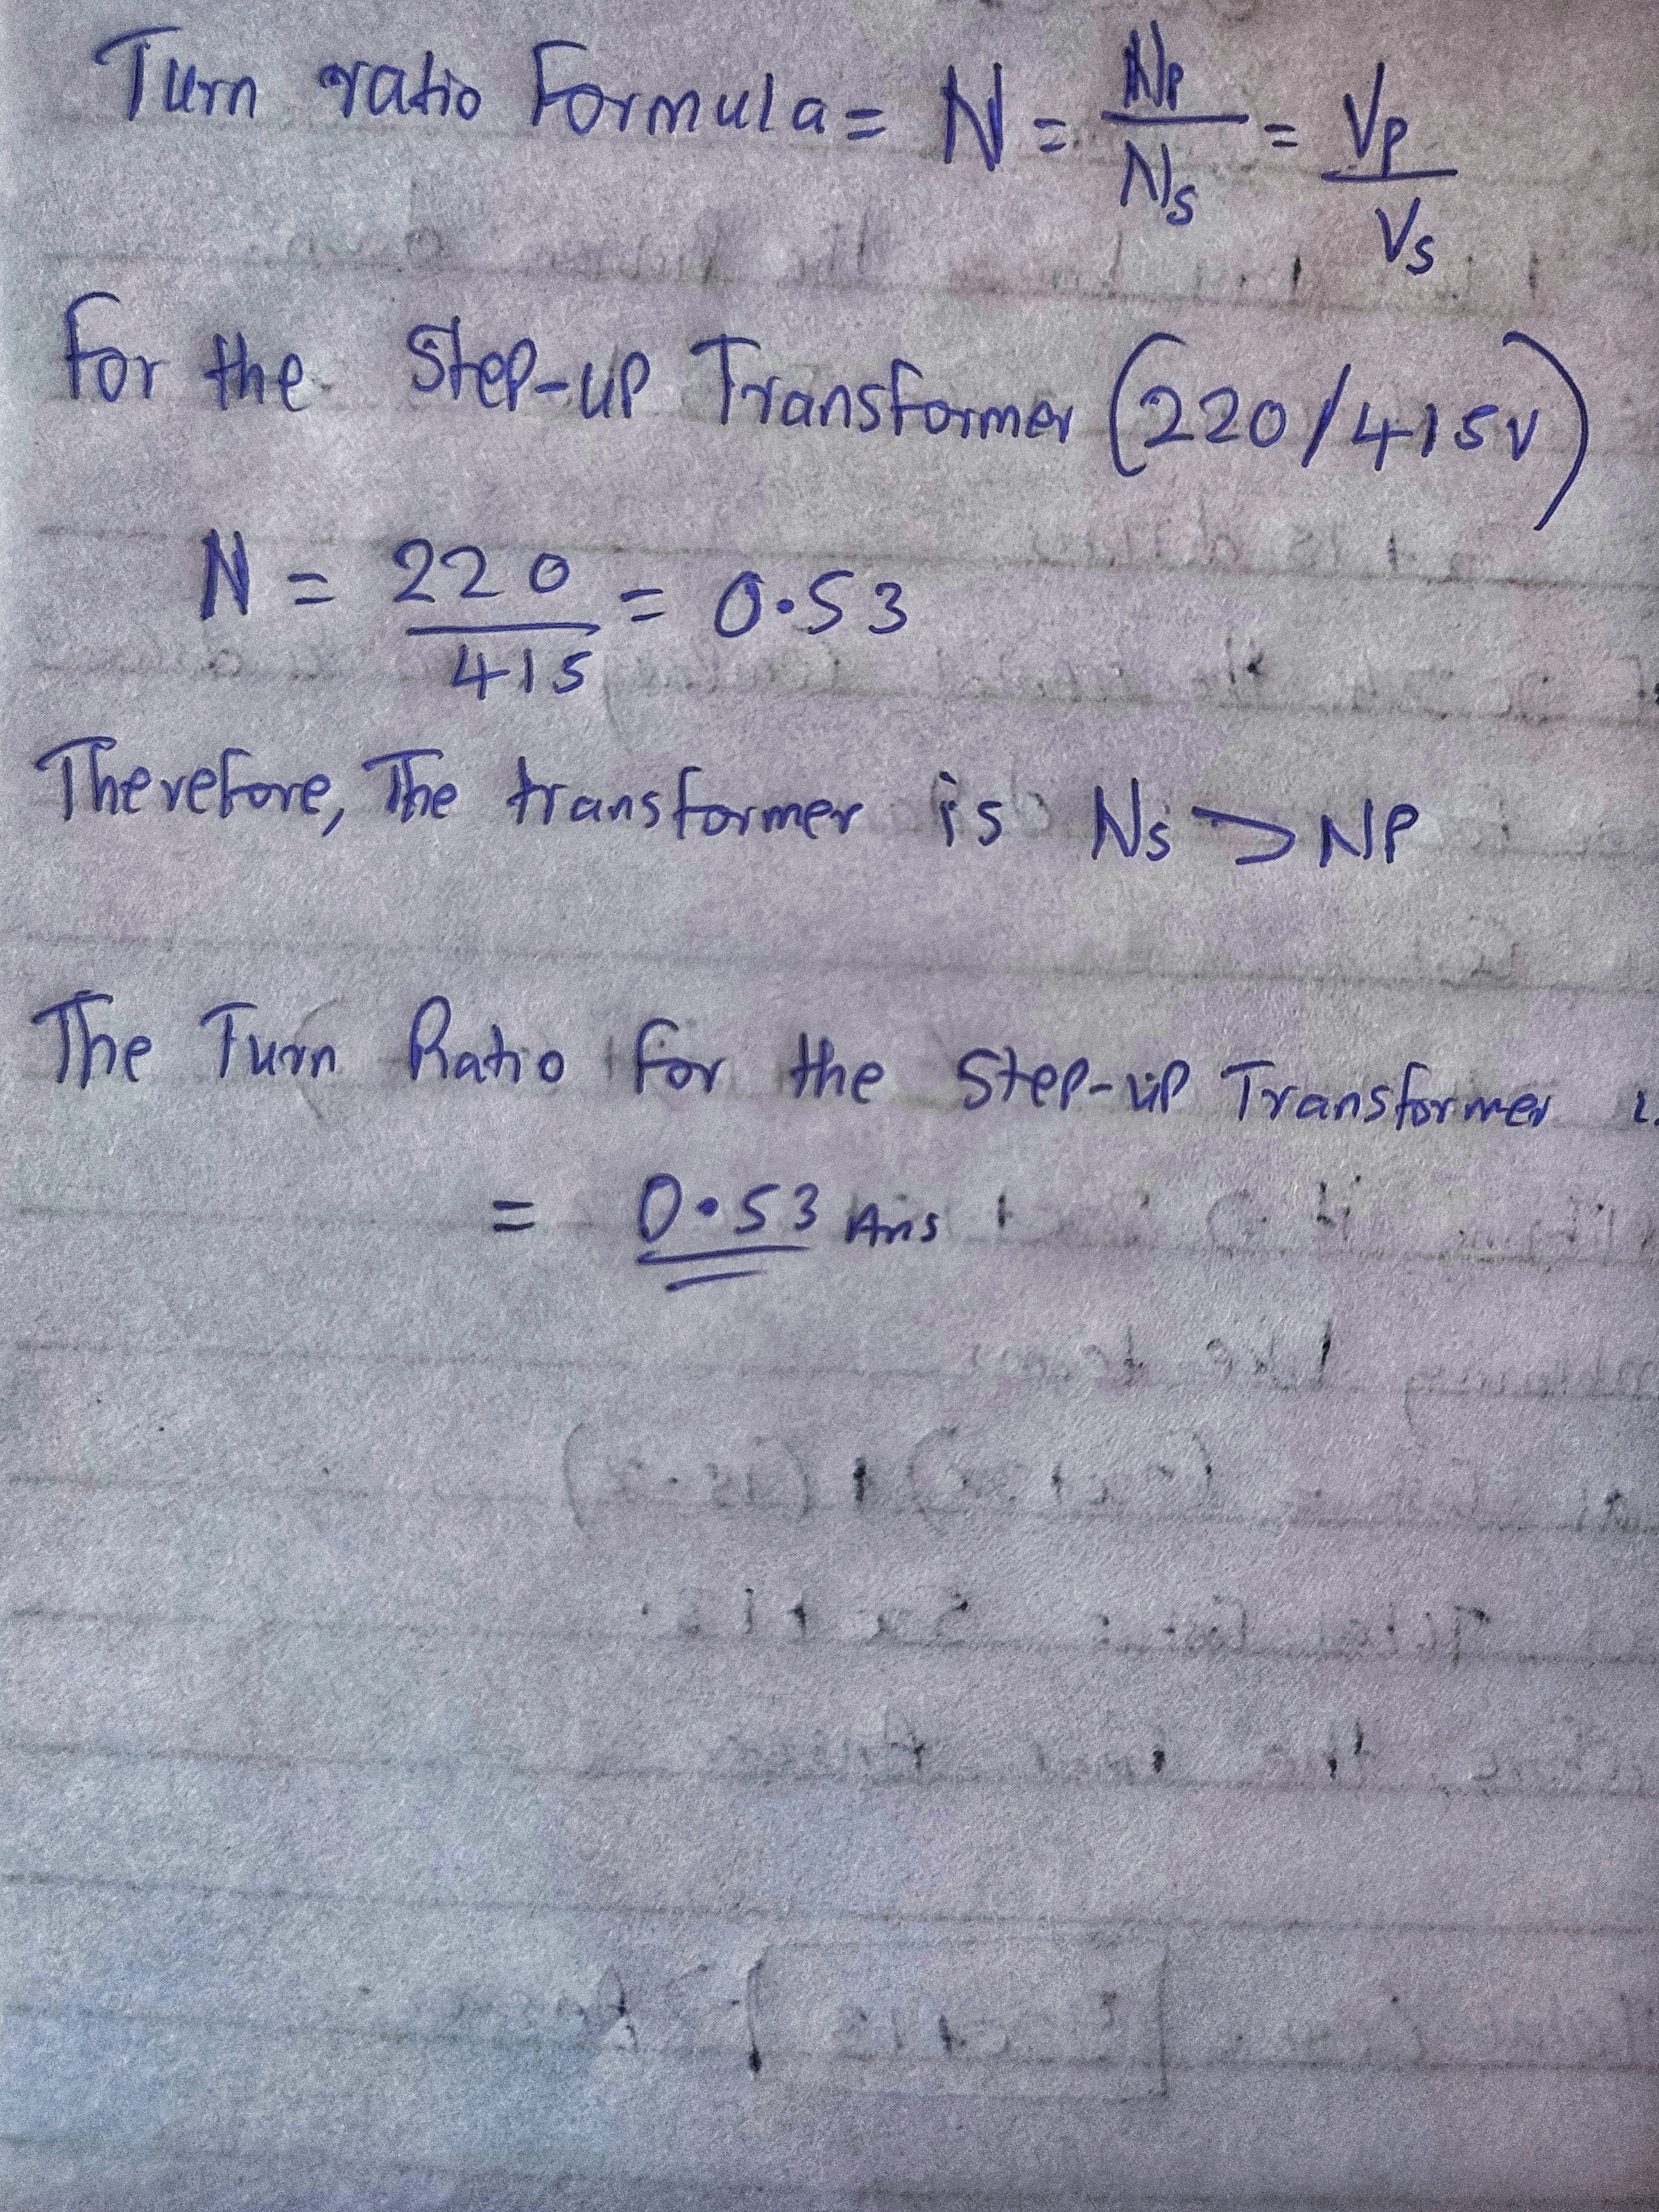 Turn ratio Formula = N = Np/Ns = Vp/Vs
For the Step-up Transformer (220/415v)
N = 220/415 = 0.53
Therefore, The transformer is Ns > NP
The Turn Ratio for the Step-up Transformer
= 0.53 Ans